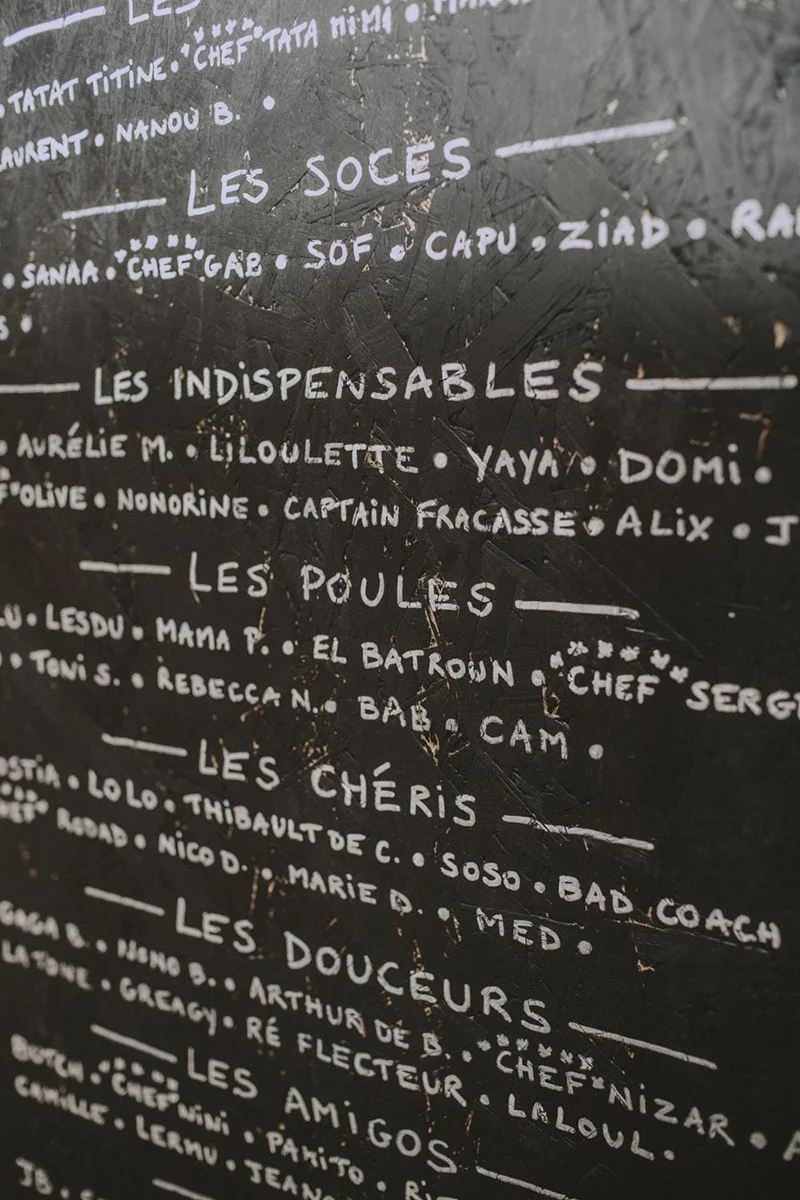 LES
• TATAT TITINE • "CHEF" TATA MIMI •
LAURENT • NANOU B. •
LES SOCES
• SANAA • "CHEF" GAB • SOF • CAPU • ZIAD •
S •
LES INDISPENSABLES
• AURÉLIE M. • LILOULETTE • YAYA • DOMI •
"OLIVE • NONORINE • CAPTAIN FRACASSE • ALIX •
LES POULES
• LESDU • MAMA P. • EL BATROUN • "CHEF" SERGE
• TONI S. • REBECCA N. • BAB • CAM •
LES CHÉRIS
• LOLO • THIBAULT DE C. • SOSO • BAD COACH
RODAD • NICO D. • MARIE D. • MED •
LES DOUCEURS
GAGA B. • NONO B. • ARTHUR DE B. • "CHEF" NIZAR •
• GREAGY • RÉ FLECTEUR • LALOUL •
LES AMIGOS
BUTCH • "CHEF" NINI • PAKITO •
CAMILLE • LERMU •
JB •